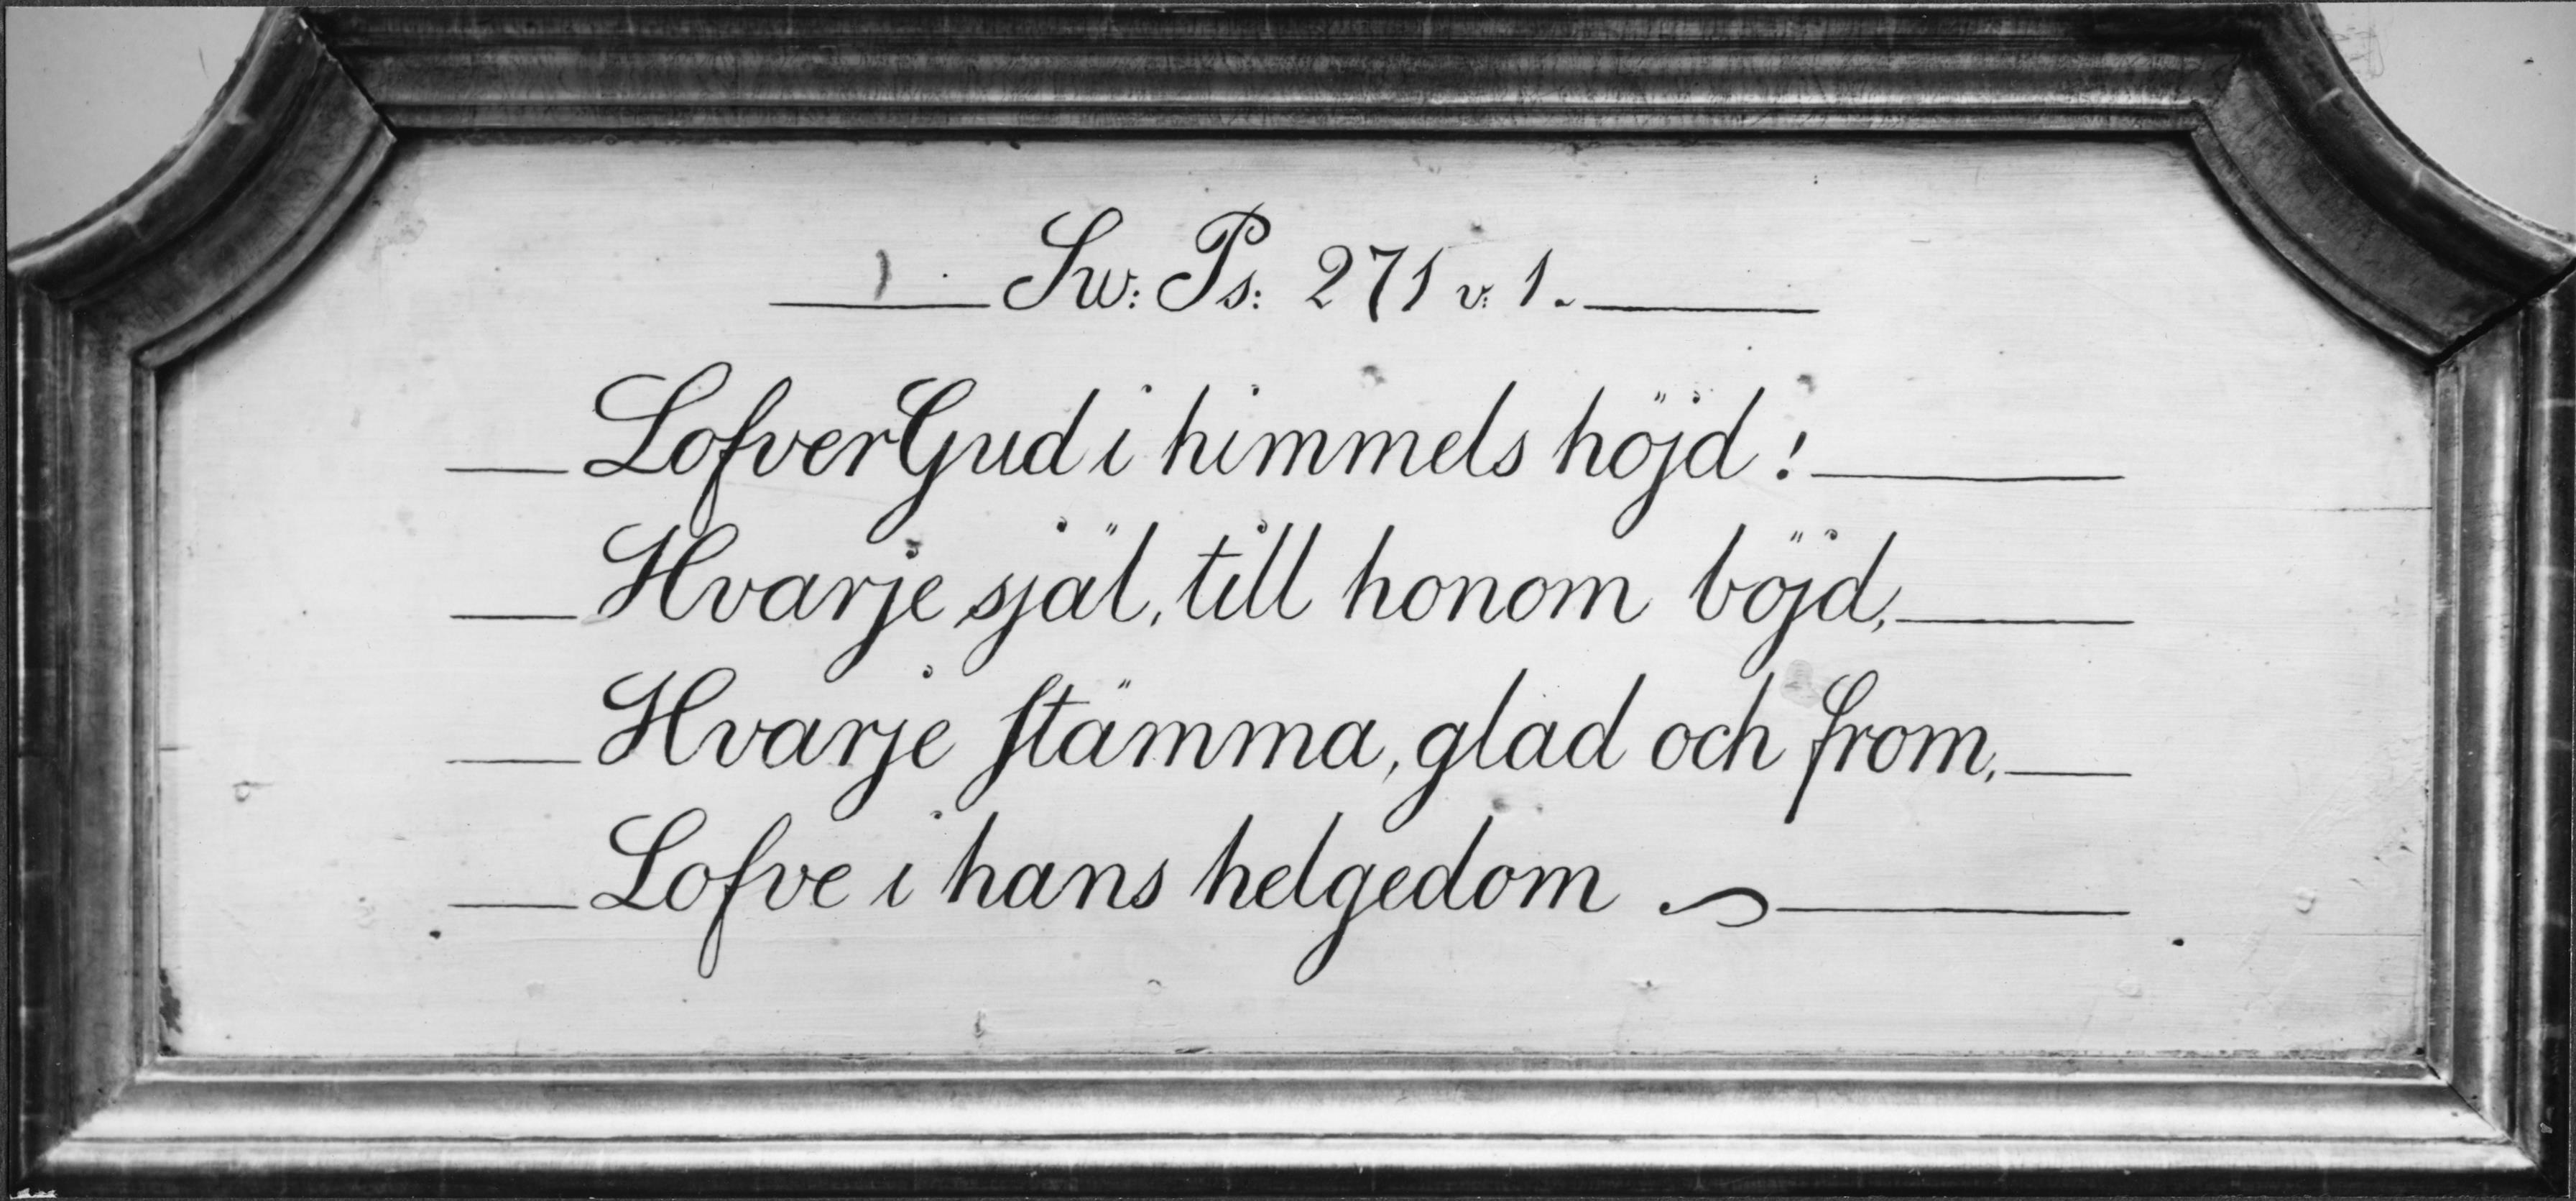 Sw: Ps: 271 v: 1.
Lofver Gud i himmels höjd!
Hvarje själ, till honom böjd,
Hvarje stämma, glad och from,
Lofve i hans helgedom